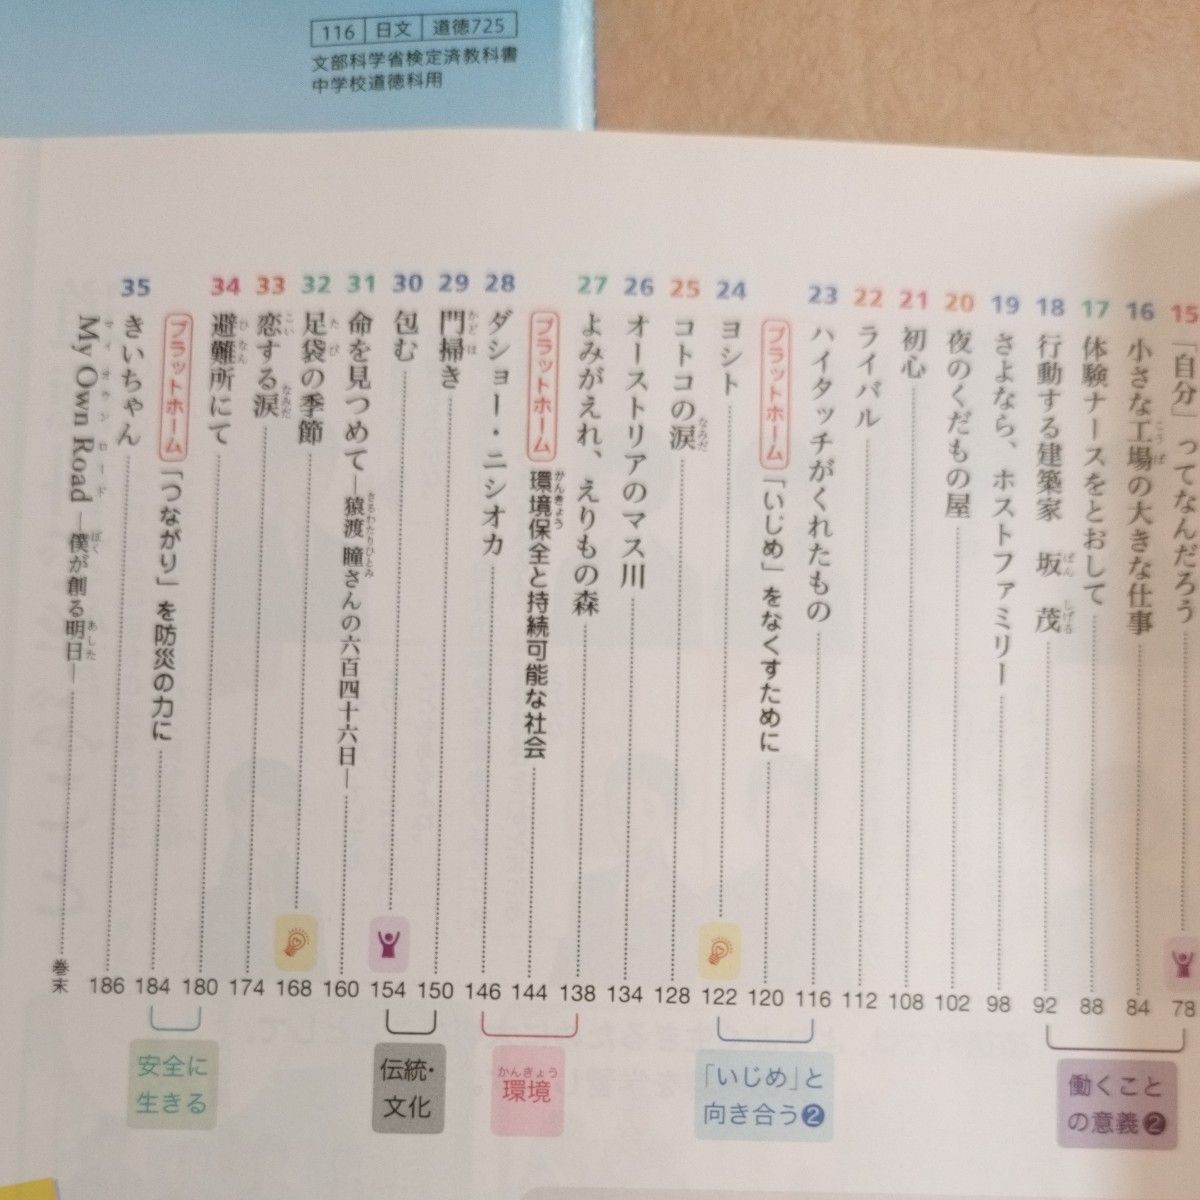 116 日文 道徳725
文部科学省検定済教科書
中学校道徳科用
15 「自分」ってなんだろう 78
16 小さな工場の大きな仕事 84
こうば
17 体験ナースをとおして 88
18 行動する建築家 坂 茂 92
ばん しげる
19 さよなら、ホストファミリー 98
20 夜のくだもの屋 102
21 初心 108
22 ライバル 112
23 ハイタッチがくれたもの 116
プラットホーム 「いじめ」をなくすために 120
24 ヨシト 122
25 コトコの涙 128
なみだ
26 オーストリアのマス川 134
27 よみがえれ、えりもの森 138
プラットホーム 環境保全と持続可能な社会 144
かんきょう
28 ダショー・ニシオカ 146
29 門掃き 150
かどは
30 包む 154
31 命を見つめて―猿渡 瞳さんの六百四十六日― 160
さるわたりひとみ
32 足袋の季節 168
たび
33 恋する涙 174
こい なみだ
34 避難所にて 180
ひなん
プラットホーム 「つながり」を防災の力に 184
35 きいちゃん 186
My Own Road ―僕が創る明日― 巻末
マイ オウン ロード ぼく あした
働くこと
の意義❷
「いじめ」と
向き合う❷
かんきょう
環境
伝統・
文化
安全に
生きる